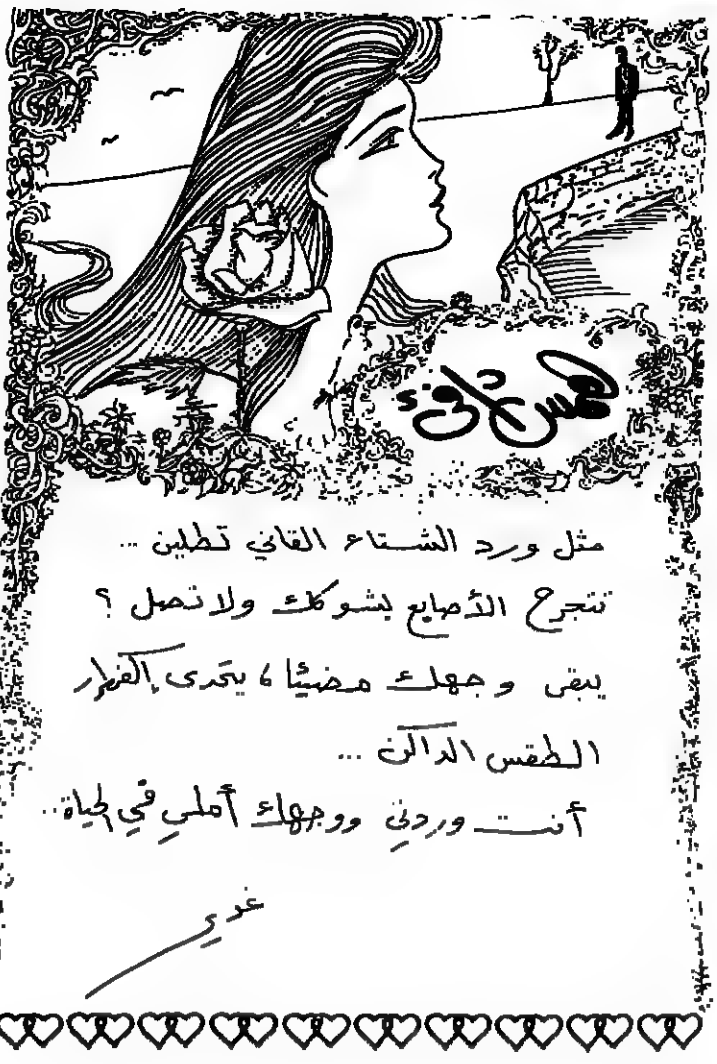 همس دافئ
مثل ورد الشتاء القاني تطلين ...
تنجرح الأصابع بشوكك ولا تصل ؟
يبقى وجهك مضيئا ، يتحدى إكفهرار
الطقس الداكن ...
أنت وردتي ووجهك أملي في الحياة ..